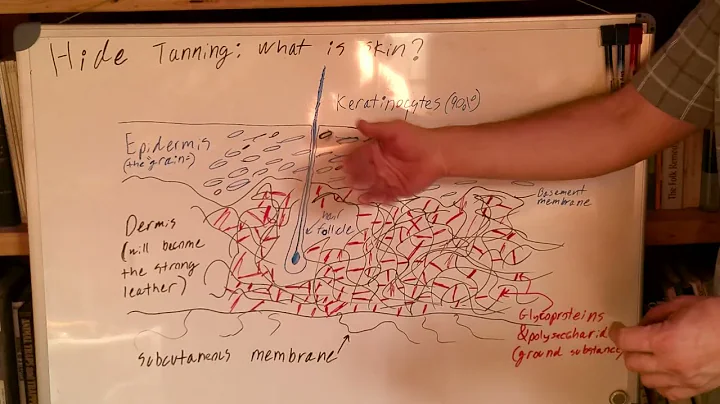 Hide Tanning: What is skin?
Keratinocytes (90%)
Epidermis
(the "grain")
Basement
membrane
hair
follicle
Dermis
(will become
the strong
leather)
Glycoproteins
& polysaccharid
(ground substance
subcutaneous membrane
The Folk Remed